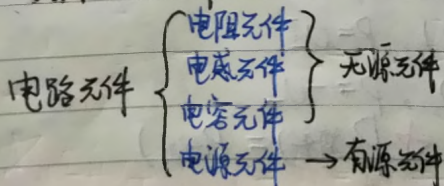 电路元件
电阻元件
电感元件
电容元件
电源元件 → 有源元件
无源元件